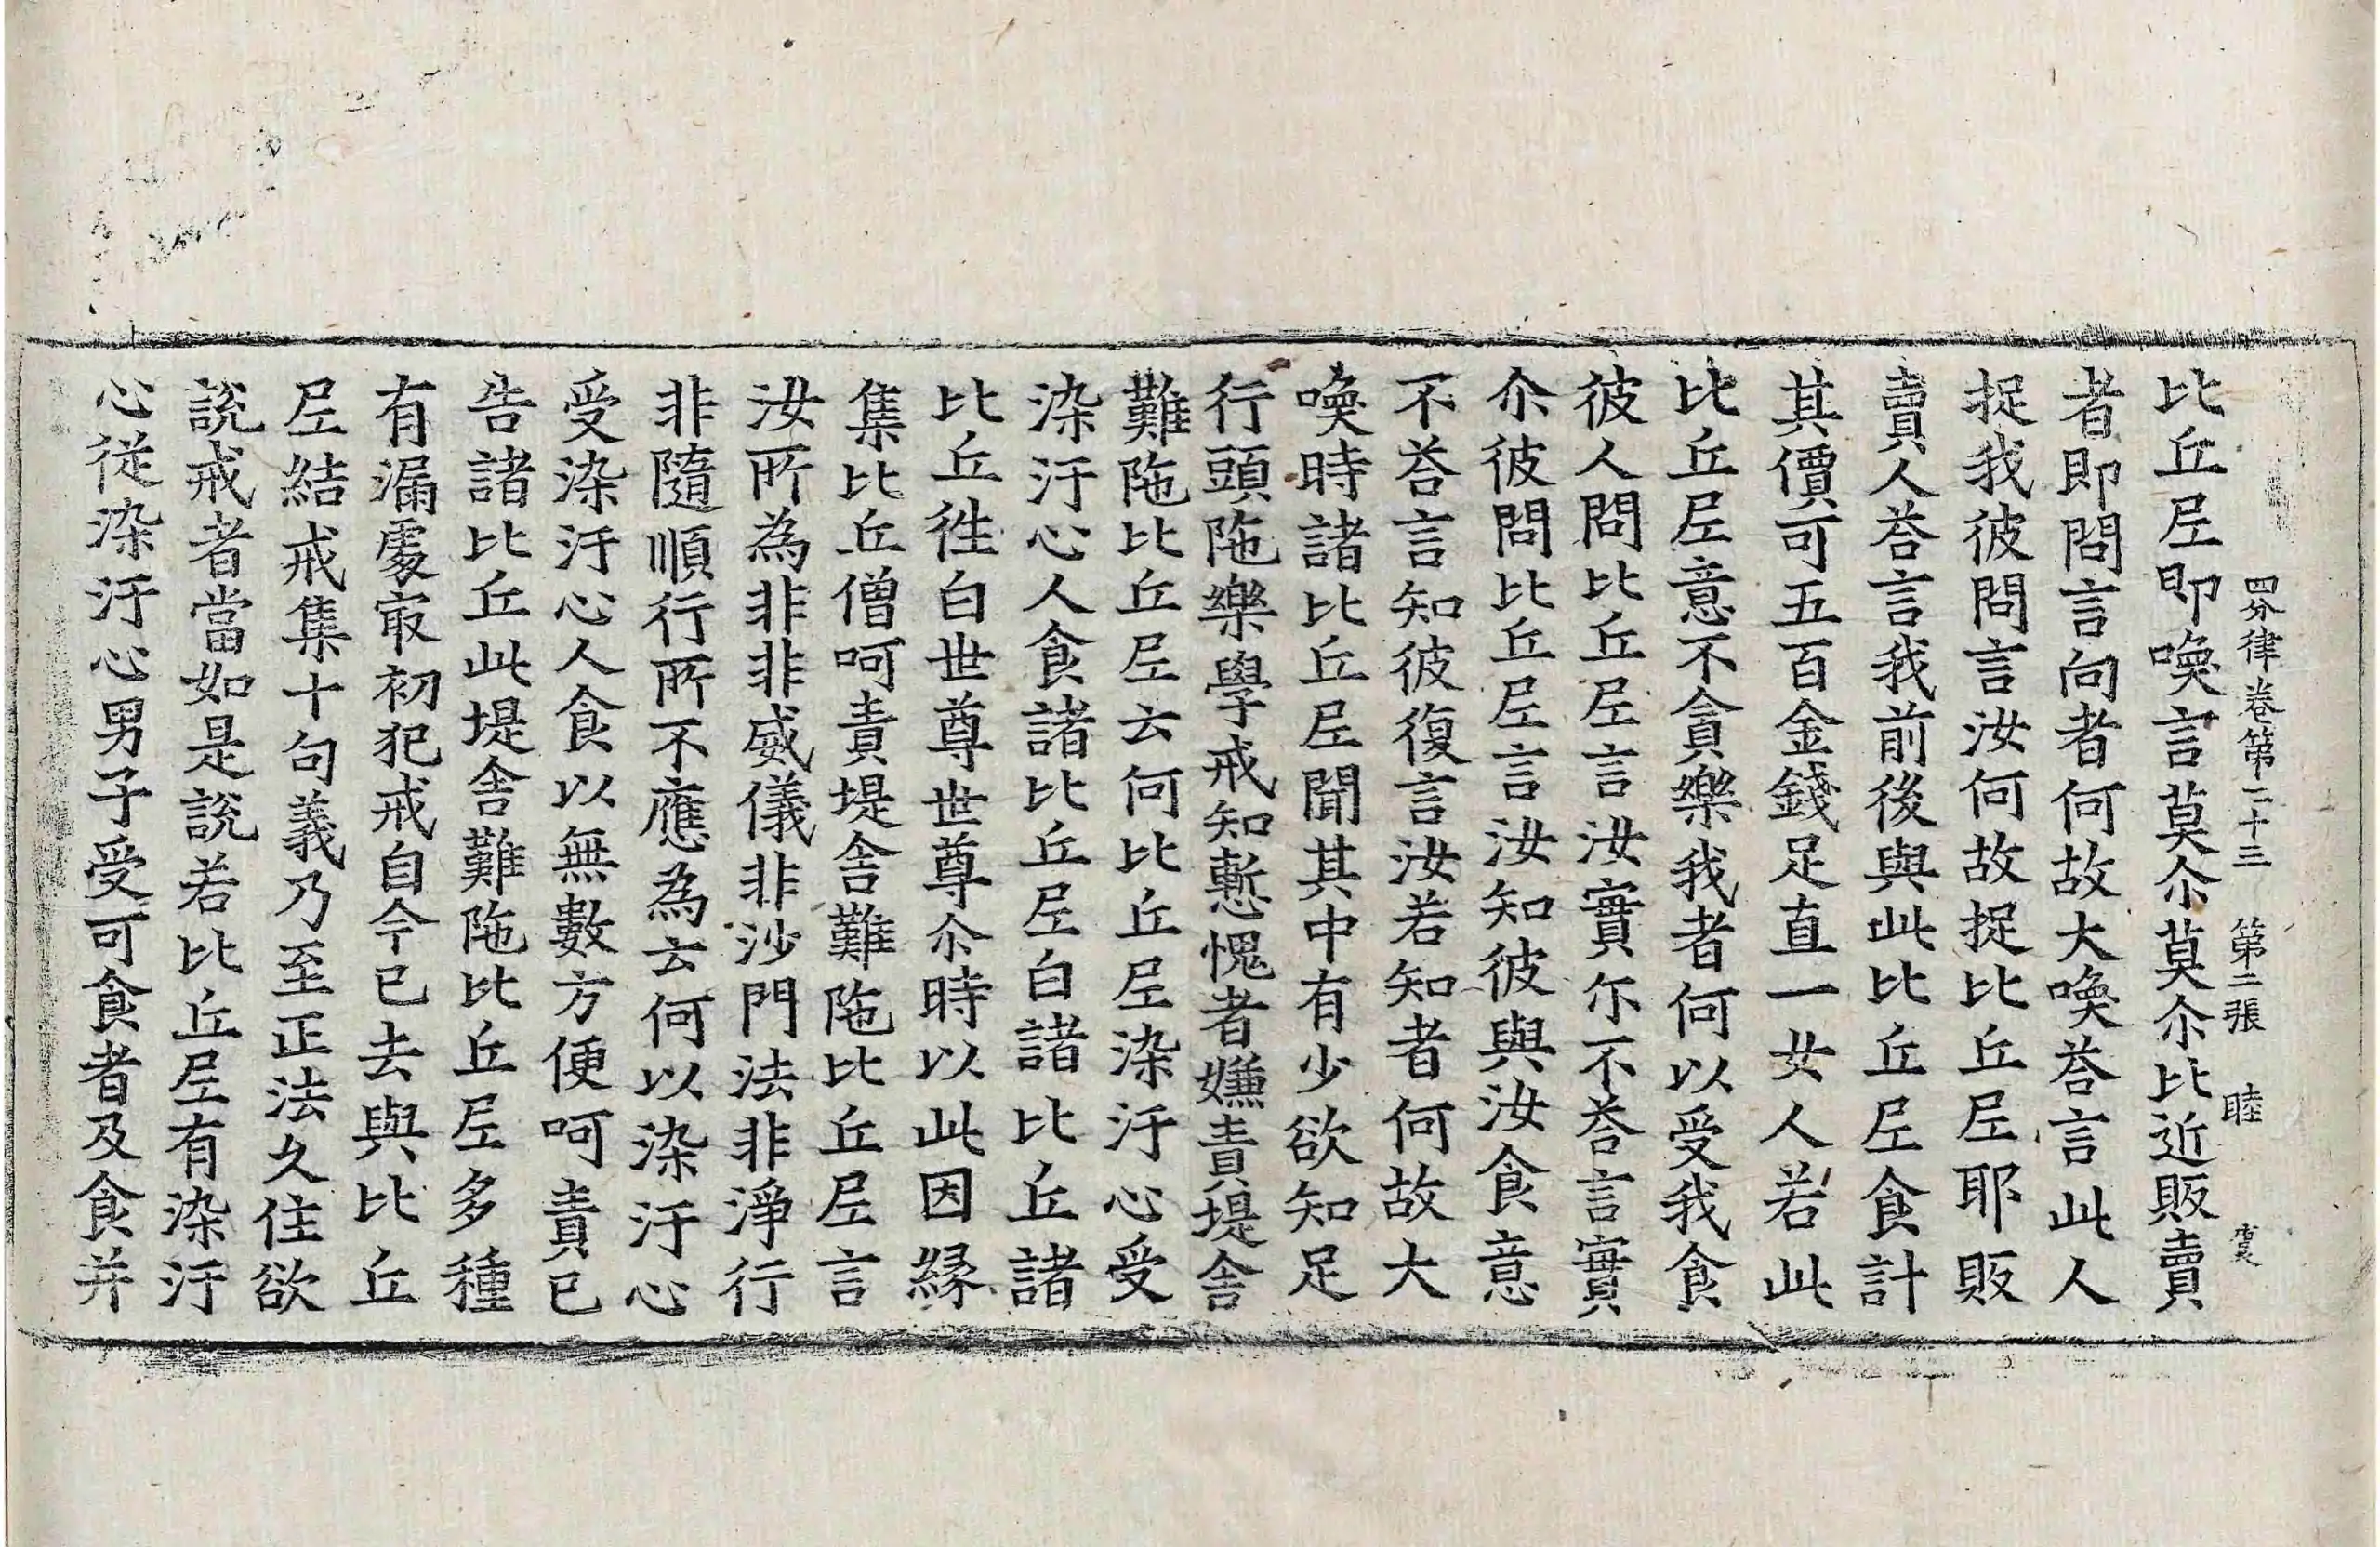 四分律卷第二十三 第二張 睦
比丘尼即喚言莫尒莫尒比近販賣
者即問言向者何故大喚荅言此人
捉我彼問言汝何故捉比丘尼耶販
賣人荅言我前後與此比丘尼食計
其價可五百金錢足直一女人若此
比丘尼意不貪樂我者何以受我食
彼人問比丘尼言汝實尒不荅言實
尒彼問比丘尼言汝知彼與汝食意
不荅言知彼復言汝若知者何故大
喚時諸比丘尼聞其中有少欲知足
行頭陁樂學戒知慙愧者嫌責堤舍
難陁比丘尼云何比丘尼染汙心受
染汙心人食諸比丘尼白諸比丘諸
比丘徃白世尊世尊尒時以此因縁
集比丘僧呵責堤舍難陁比丘尼言
汝所為非非威儀非沙門法非淨行
非隨順行所不應為云何以染汙心
受染汙心人食以無數方便呵責已
告諸比丘此堤舍難陁比丘尼多種
有漏處㝡初犯戒自今已去與比丘
尼結戒集十句義乃至正法久住欲
說戒者當如是說若比丘尼有染汙
心從染汙心男子受可食者及食并